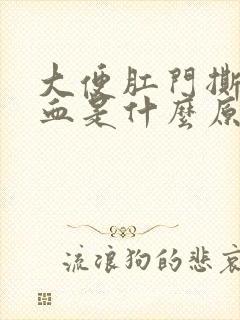 大便肛門撕
血是什麼原
流浪狗的悲哀